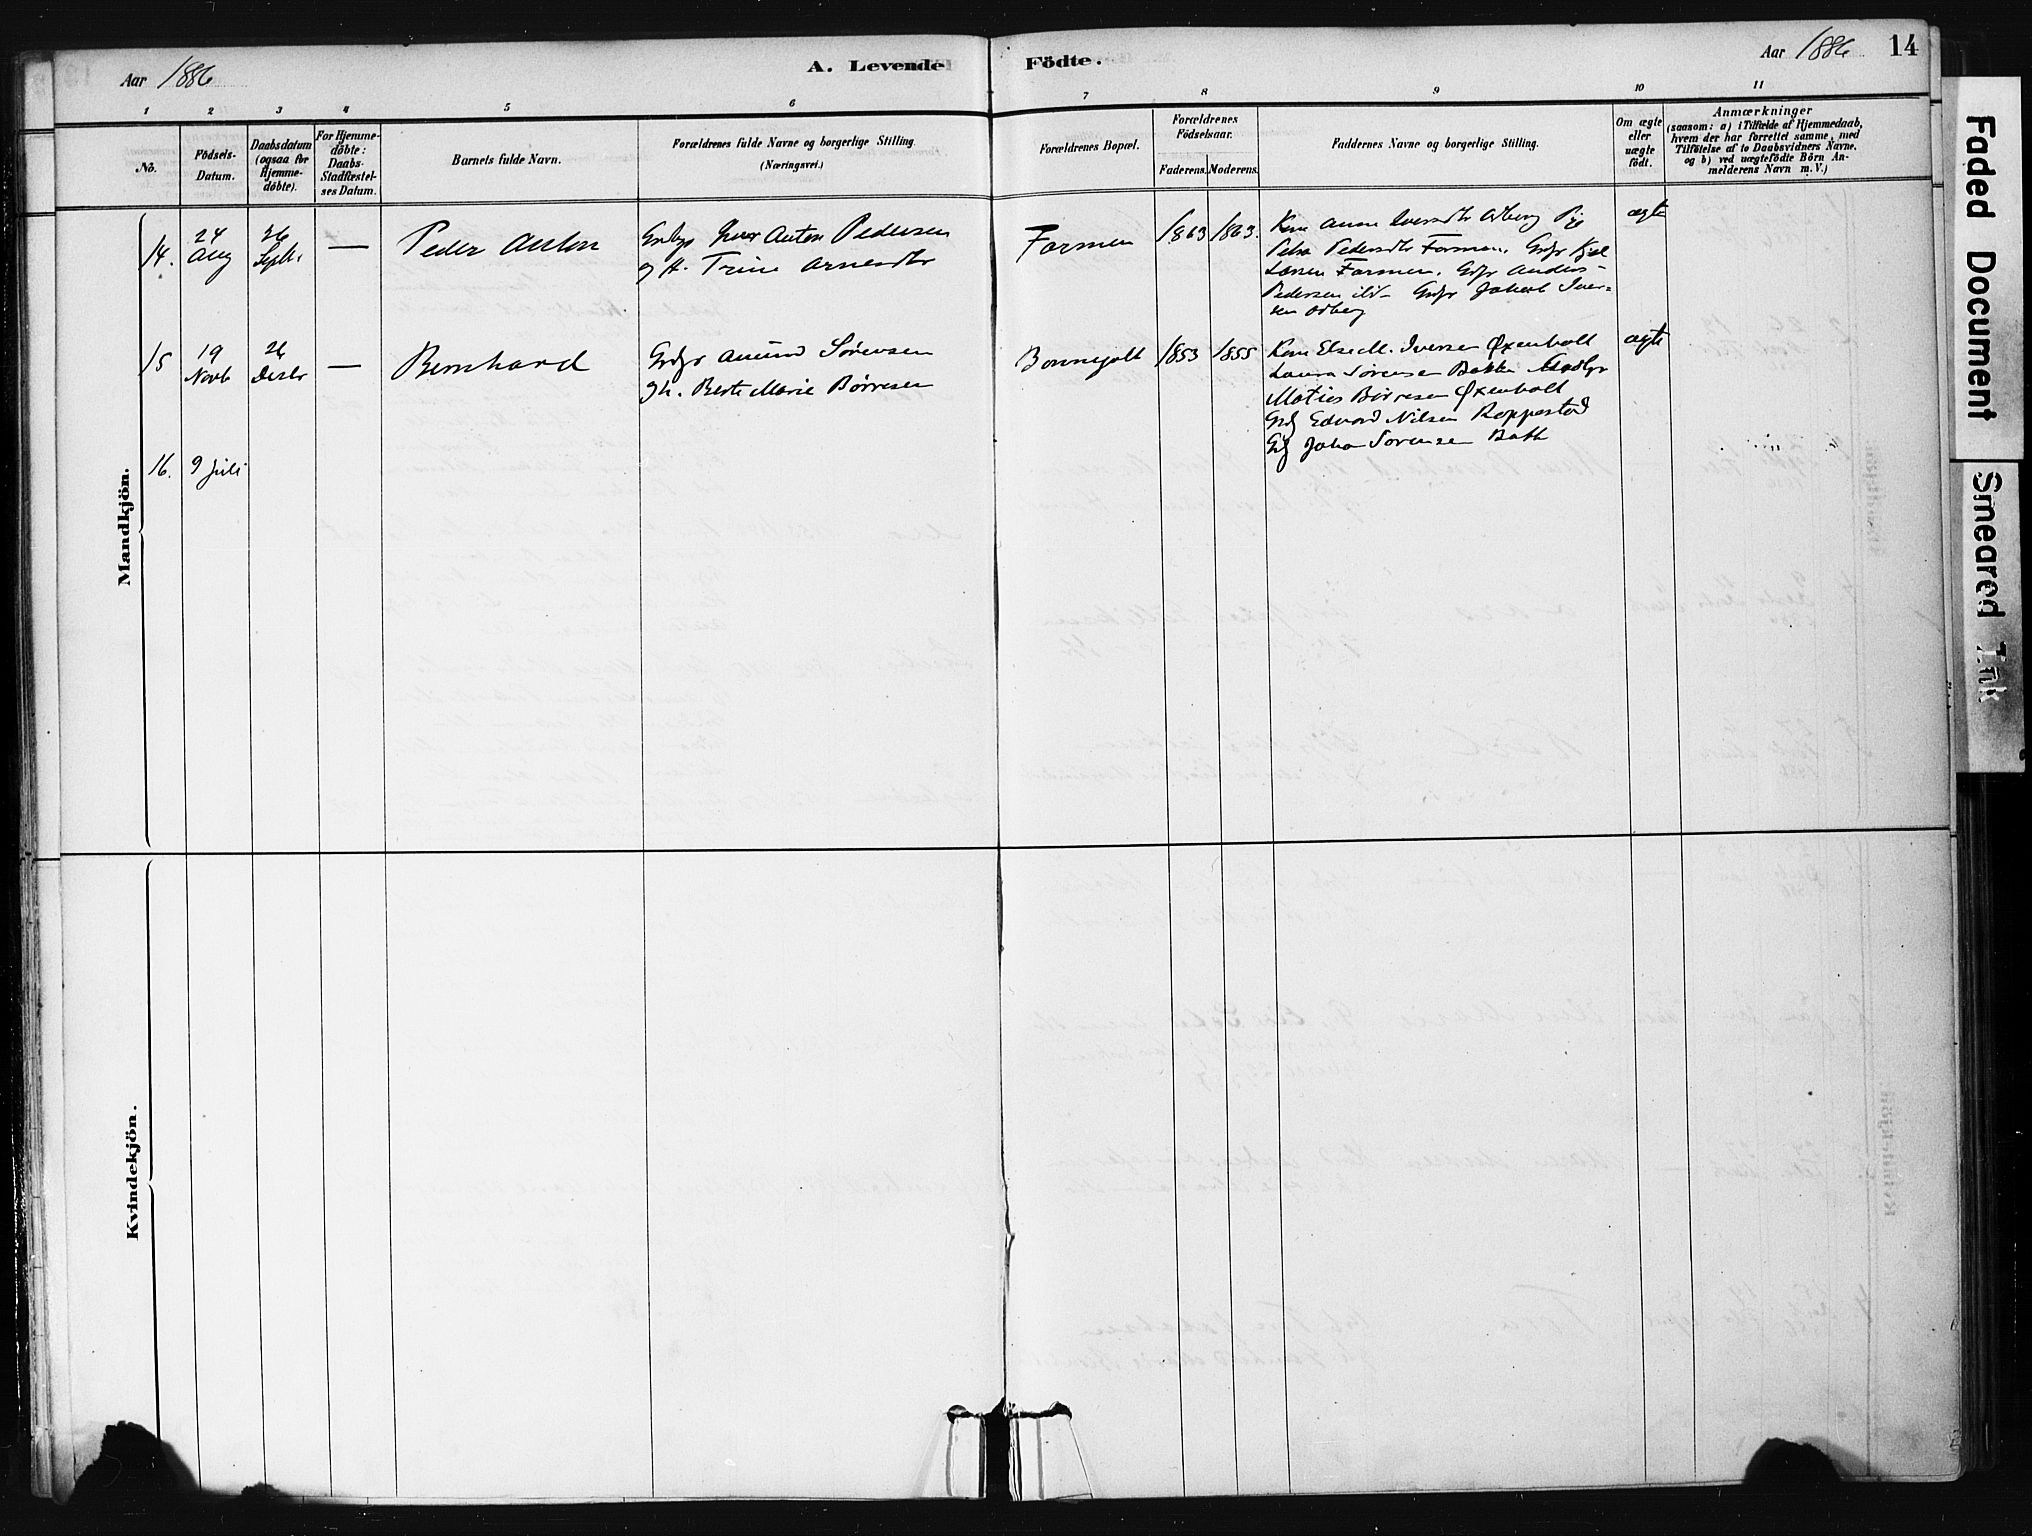 Aar 1886
A. Levende Födte.
Aar 1886
14
1 2 3 4 5 6 7 8 9 10 11
No.
Födsels-
Datum.
Daabsdatum
(ogsaa for
Hjemme-
döbte).
For Hjemme-
döbte:
Daabs-
Stadfæstel-
ses Datum.
Barnets fulde Navn.
Forældrenes fulde Navne og borgerlige Stilling.
(Næringsvei.)
Forældrenes Bopæl.
Forældrenes
Födselsaar.
Faderens. Moderens.
Faddernes Navne og borgerlige Stilling.
Om ægte
eller
uægte
födt.
Anmærkninger
(saasom: a) i Tilfælde af Hjemmedaab,
hvem der har forrettet samme, med
Tilföielse af to Daabsvidners Navne,
og b) ved uægtefödte Börn An-
melderens Navn m. V.)
Mandkjön.
14.
24
Aug
26
Septr
—
Peder Anton
Anton Pedersen
og H. Trine Arnesdtr
Farmen
1863
1863.
Kone Anne Iversdtr Odberg Pige
Petra Pedersdtr Farmen. Gdbr
Larsen Farmen. Gdbr Anders
Pedersen ibd Gdbr Jakob Iver-
sen Odberg
ægte
15
19
Novb
26
Decbr
—
Bernhard
Gdbr Amund Sörensen
og H. Berte Marie Börresen
1853
1855
Kone Else M. Iversen Øxenholt
Laura Sörensen Bakke
Matias Börresen Øxenholt
Edvard Nilsen Roppestad
Johan Sörensen
ægte
16.
9 Juli
Kvindekjön.
Faded Document
Smeared Ink